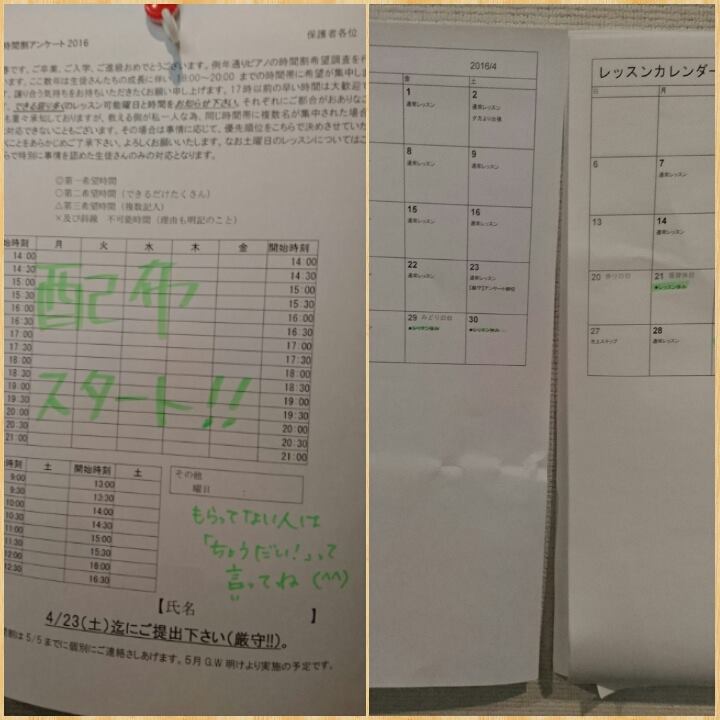 保護者各位
時間割アンケート2016
です。ご卒業、ご入学、ご進級おめでとうございます。例年通りピアノの時間割希望調査を行
います。ここ数年は生徒さんたちの成長に伴い、18:00～20:00 までの時間帯に希望が集中しま
す。譲り合う気持ちをお持ちいただきたくお願い申し上げます。17時以前の早い時間は大歓迎で
できる限り多くのレッスン可能曜日と時間をお知らせ下さい。それぞれにご都合がおありなこ
とも重々承知しておりますが、教える側が私一人な為、同じ時間帯に複数名が集中された場合
対応できないこともございます。その場合は事情に応じて、優先順位をこちらで決めさせていた
くことをあらかじめご了承下さい。よろしくお願いします。なお土曜日のレッスンについてはこ
らで特別に事情を認めた生徒さんのみの対応となります。
◎第一希望時間
○第二希望時間（できるだけたくさん）
△第三希望時間（複数記入）
×及び斜線 不可能時間（理由も明記のこと）
開始時刻 月 火 水 木 金 開始時刻
14:00 14:00
14:30 14:30
15:00 15:00
15:30 15:30
16:00 16:00
16:30 16:30
17:00 17:00
17:30 17:30
18:00 18:00
18:30 18:30
19:00 19:00
19:30 19:30
20:00 20:00
20:30 20:30
21:00 21:00
配布
スタート!!
時刻 土 開始時刻 土
9:00 13:00
9:30 13:30
10:00 14:00
10:30 14:30
11:00 15:00
11:30 15:30
12:00 16:00
12:30 16:30
その他
曜日
もらってない人は
「ちょうだい!」って
言ってね (^^)
【氏名 】
4/23(土)迄にご提出下さい(厳守!!)。
割は 5/5 までに個別にご連絡さしあげます。5月 G.W 明けより実施の予定です。
2016/4
金 土
1 2
通常レッスン 通常レッスン
夕方より出張
8 9
通常レッスン 通常レッスン
15 16
通常レッスン 通常レッスン
22 23
通常レッスン 通常レッスン
【厳守】アンケート締切
29 みどりの日 30
●レッスン休み ●レッスン休み
レッスンカレンダー
日 月
6 7
通常レッスン
13 14
通常レッスン
20 春分の日 21 振替休日
●レッスン休み
27 28
ステップ 通常レッスン